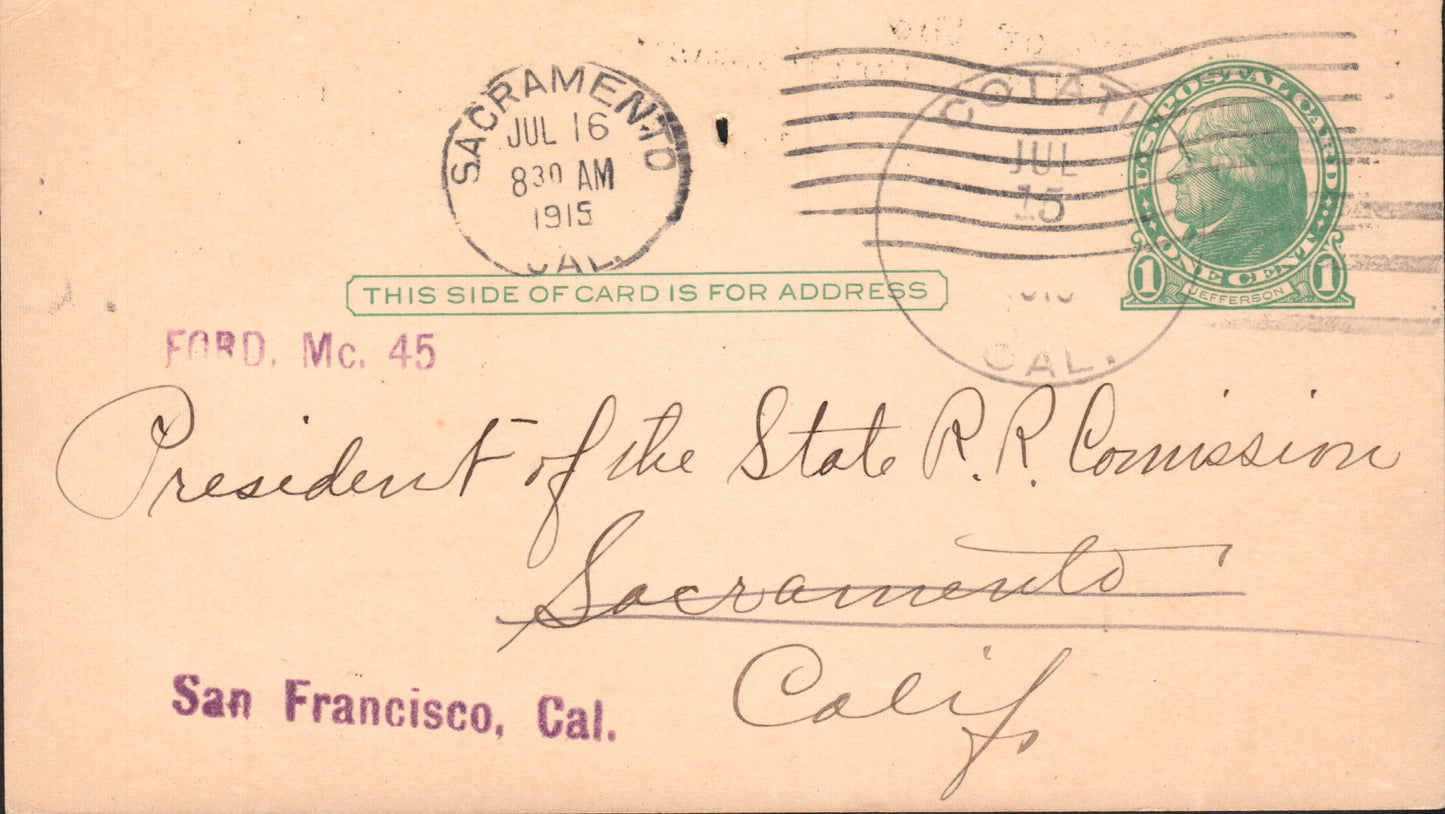 SACRAMENTO
JUL 16
8 30 AM
1915
CAL.
COTATI
JUL
15
CAL.
U.S. POSTAL CARD
ONE CENT
1 JEFFERSON 1
THIS SIDE OF CARD IS FOR ADDRESS
FORD. Mc. 45
President of the State R. R. Comission
Sacramento
Calif
San Francisco, Cal.